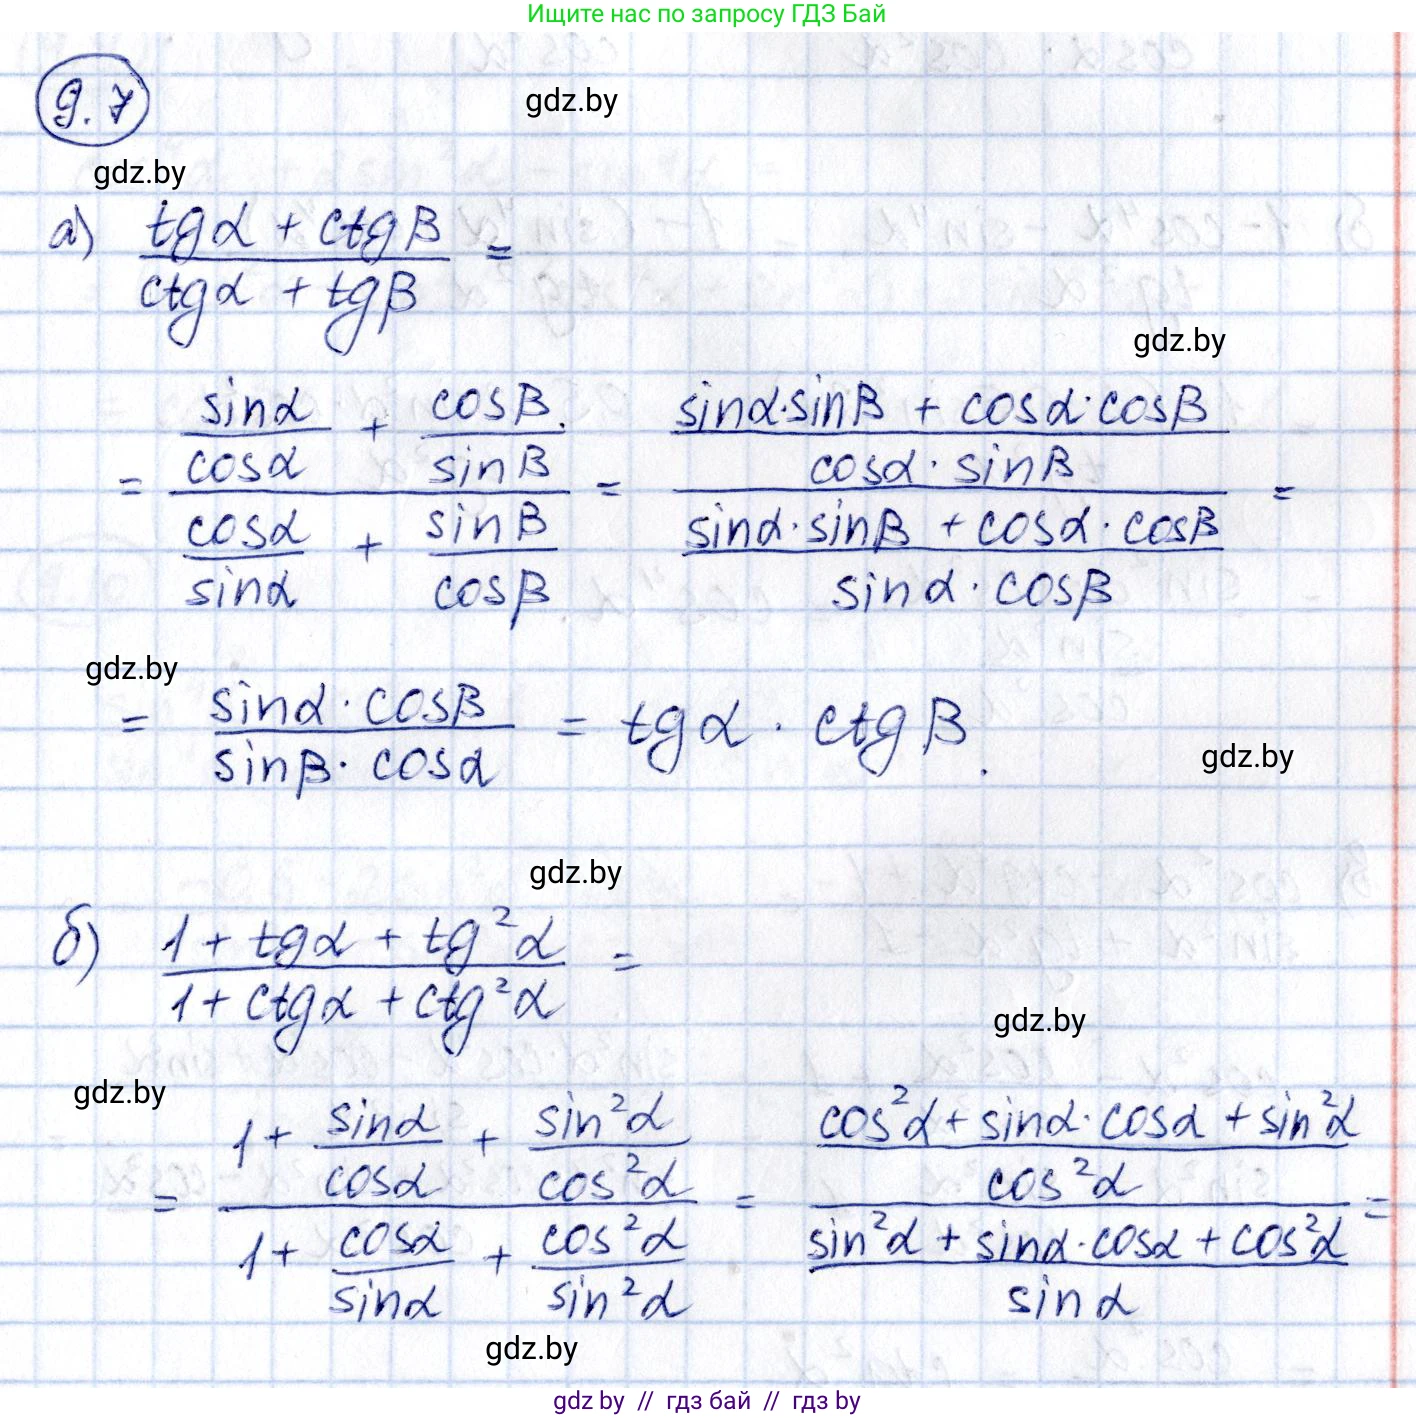 Ищите нас по запросу ГДЗ Бай
9.7
gdz.by
gdz.by
а) (tgα + ctgβ)/(ctgα + tgβ) =
gdz.by
= (sinα/cosα + cosβ/sinβ)/(cosα/sinα + sinβ/cosβ) = ((sinα·sinβ + cosα·cosβ)/(cosα·sinβ))/((sinα·sinβ + cosα·cosβ)/(sinα·cosβ)) =
gdz.by
= (sinα·cosβ)/(sinβ·cosα) = tgα · ctgβ.
gdz.by
gdz.by
б) (1 + tgα + tg²α)/(1 + ctgα + ctg²α) =
gdz.by
gdz.by
= (1 + sinα/cosα + sin²α/cos²α)/(1 + cosα/sinα + cos²α/sin²α) = ((cos²α + sinα·cosα + sin²α)/cos²α)/((sin²α + sinα·cosα + cos²α)/sinα) =
gdz.by
gdz.by // гдз бай // гдз by